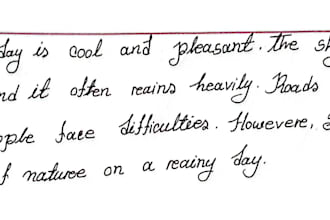 day is cool and pleasant. the
nd it often reains heavily. Roads
ople face difficulties. Howevere,
f naturee on a reainy day.